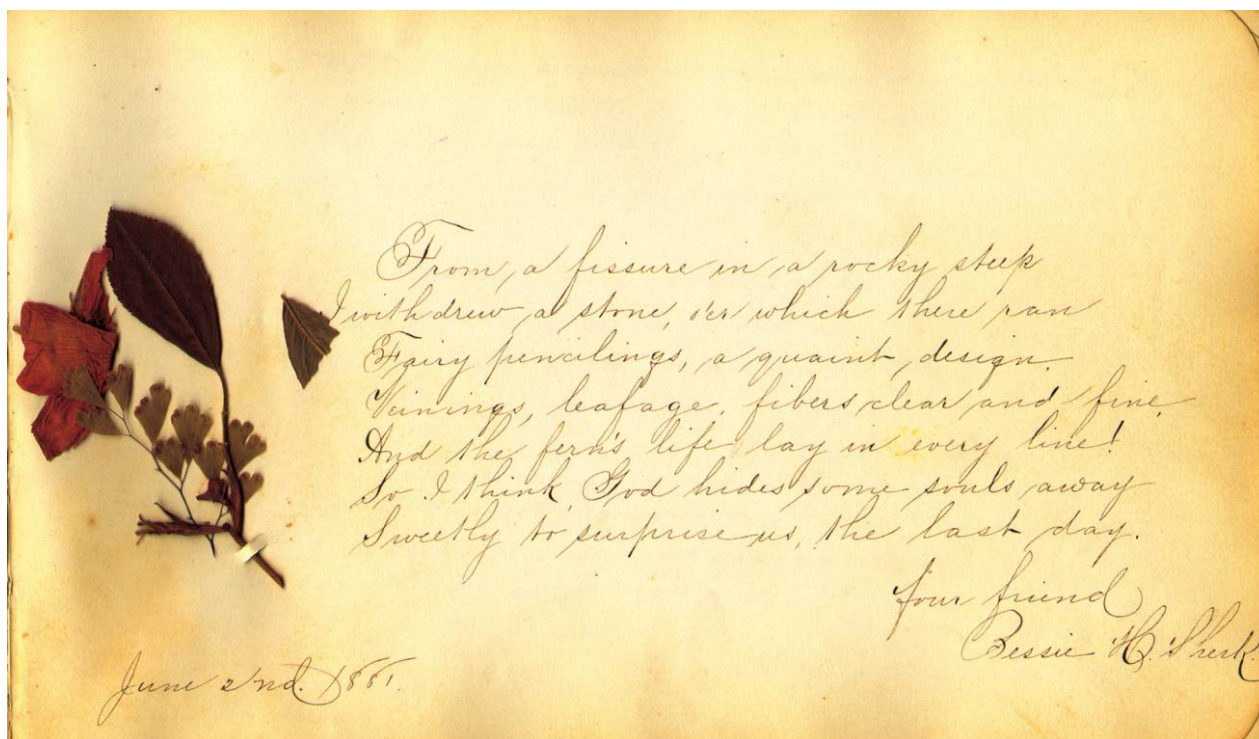 From, a fissure in a rocky steep
I withdrew a stone, o'er which there ran
Fairy pencilings, a quaint design.
Veinings, leafage, fibers clear and fine,
And the fern's life lay in every line!
So I think, God hides some souls away
Sweetly to surprise us, the last day.
Your friend
Bessie H. Sherk.
June 2nd. 1881.